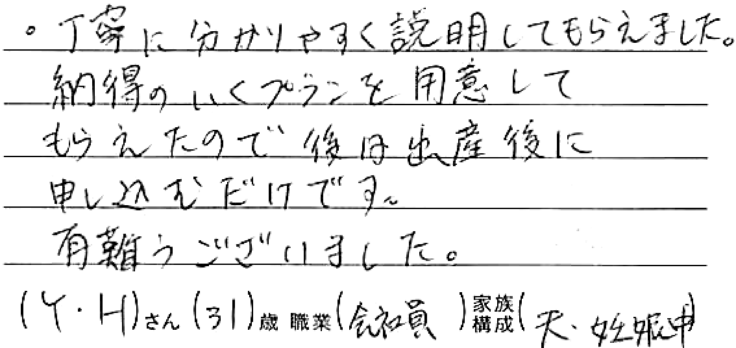 。丁寧に分かりやすく説明してもらえました。
納得のいくプランを用意して
もらえたので後は出産後に
申し込むだけです。
有難うございました。
(Y・H)さん(31)歳 職業(会社員)家族構成(夫・妊娠中)